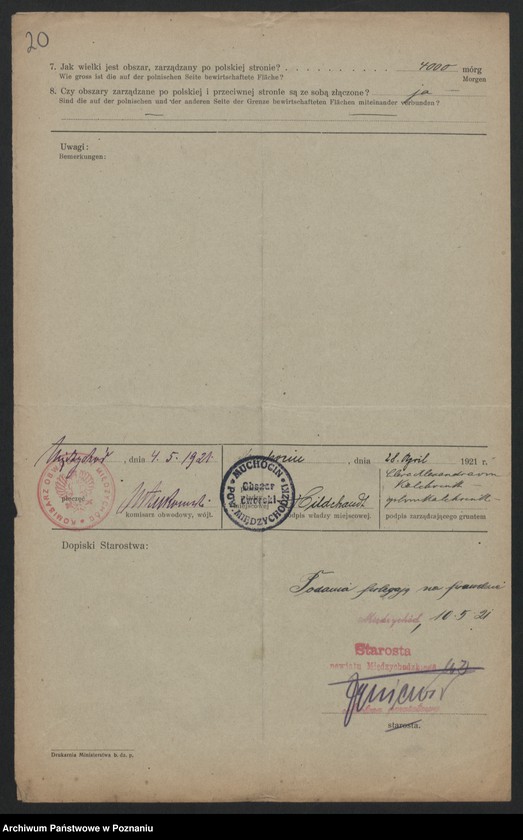 20
7. Jak wielki jest obszar, zarządzany po polskiej stronie? . . . . . . . . . . . 4000 mórg
Wie gross ist die auf der polnischen Seite bewirtschaftete Fläche? Morgen
8. Czy obszary zarządzane po polskiej i przeciwnej stronie są ze sobą złączone? ja
Sind die auf der polnischen und der anderen Seite der Grenze bewirtschafteten Flächen miteinander verbunden?
Uwagi:
Bemerkungen:
Międzychód, dnia 4. 5. 1921. , dnia 28. April 1921 r.
KOMISARZ OBW MIĘDZYCHÓD
pieczęć
MUCHOCIN
Obszar
Dworski
POW. MIĘDZYCHODZKI
Hildebrandt
komisarz obwodowy, wójt. podpis władzy miejscowej. podpis zarządzającego gruntem
Dopiski Starostwa:
Podania polegają na prawdzie
Międzychód, 10 5 21
Starosta
powiatu Międzychodzkiego
starosta.
Drukarnia Ministerstwa b. dz. p.
Archiwum Państwowe w Poznaniu